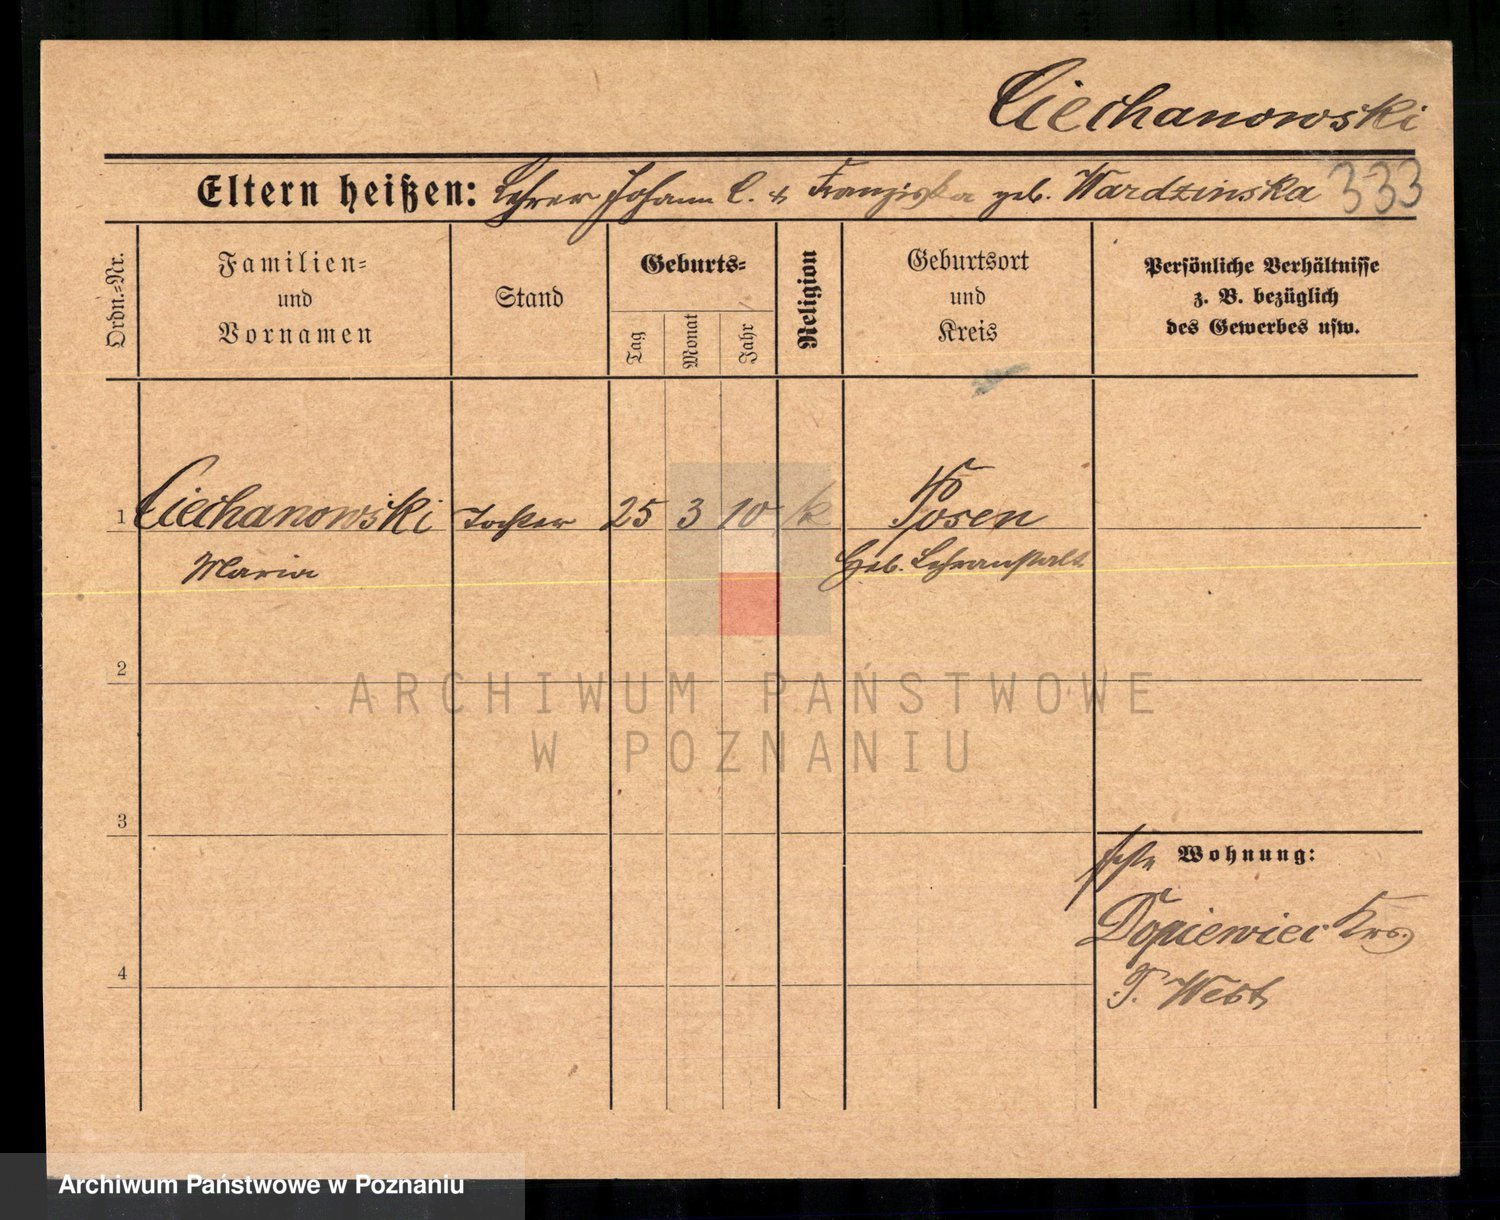 Ciechanowski
Eltern heißen: Lehrer Johann C. & Franziska geb. Wardzinska 333
Ordn.-Nr.
Familien-
und
Vornamen
Stand
Geburts-
Tag
Monat
Jahr
Religion
Geburtsort
und
Kreis
Persönliche Verhältnisse
z. B. bezüglich
des Gewerbes usw.
1 Ciechanowski Tochter 25 3 10 k Posen
Maria Heb. Lehranstalt
2
ARCHIWUM PAŃSTWOWE
W POZNANIU
3
Wohnung:
Dopiewiec Krs.
P. West
4
Archiwum Państwowe w Poznaniu